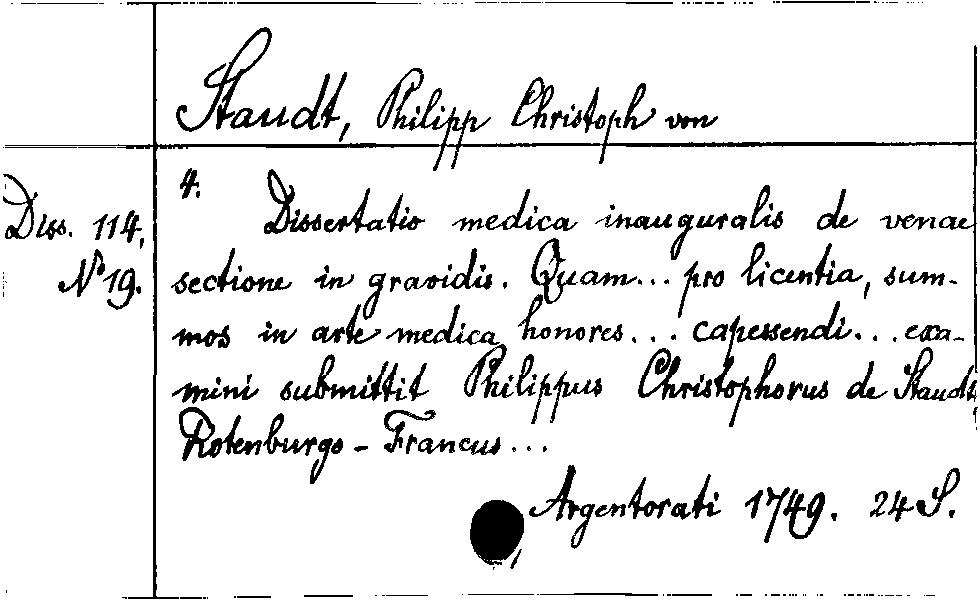 Staudt, Philipp Christoph von
4.
Diss. 114,
No 19.
Dissertatio medica inauguralis de venae
sectione in gravidis. Quam... pro licentia, sum-
mos in arte medica honores... capessendi... exa-
mini submittit Philippus Christophorus de Staudt,
Rotenburgo - Francus...
Argentorati 1749. 24 S.